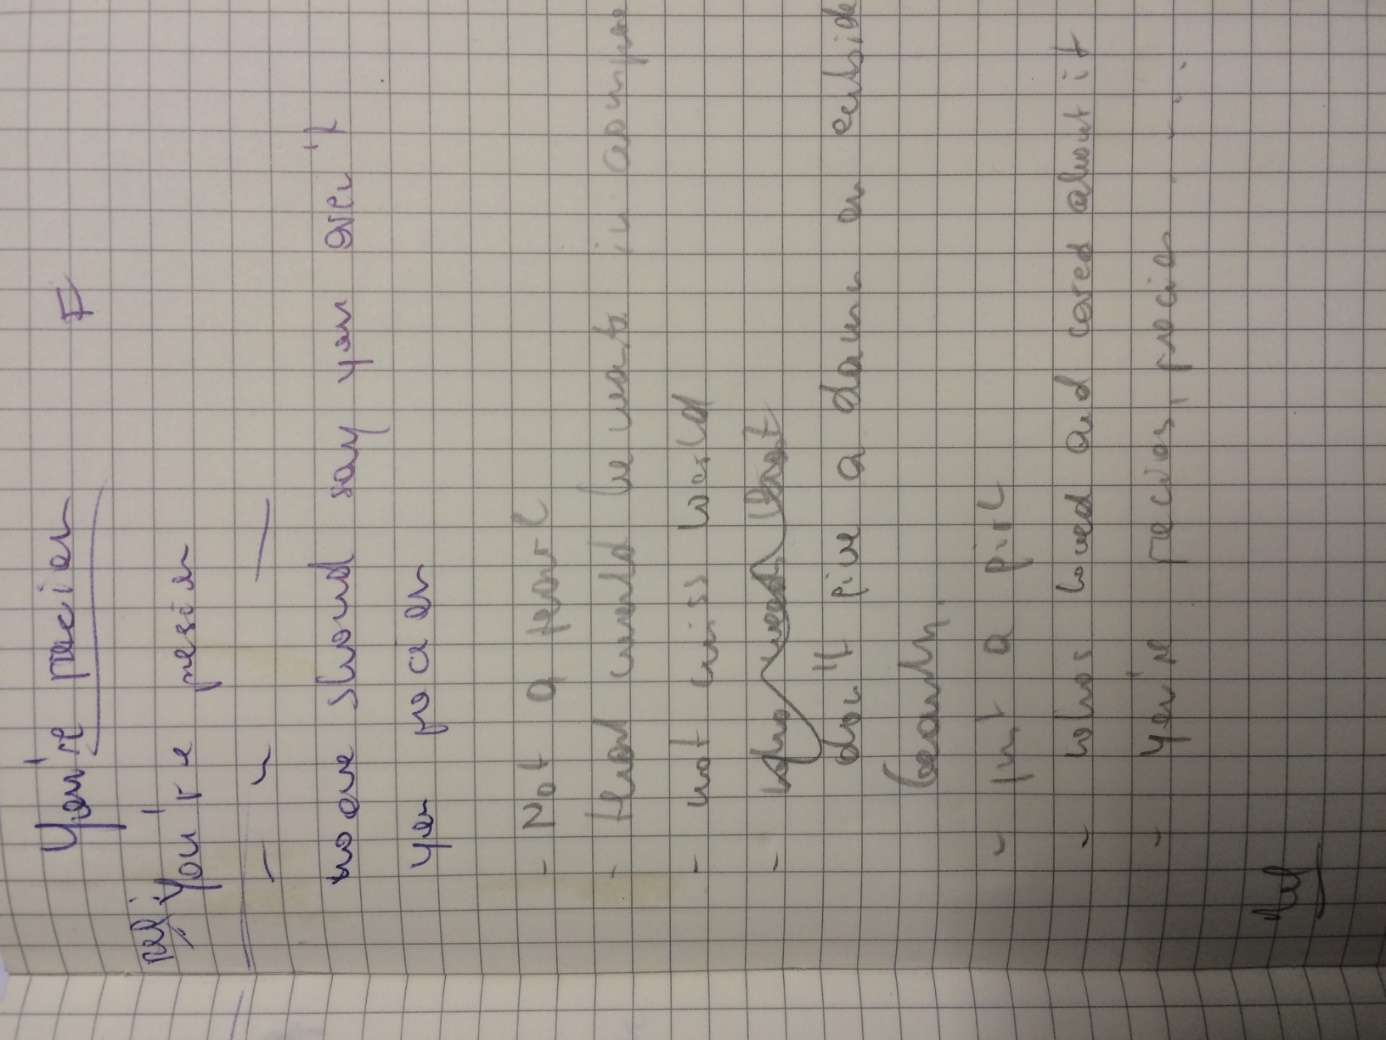 You're precion F
ref: You're presion
— " —
noone should say you aren't
you procion
- Not a pearl
- that would be wats in compare
- not miss world
- who
don't give a damn on outside
beauty.
- just a girl
- whos loved and cared about it
- You're precios, procion . - . .
Ref